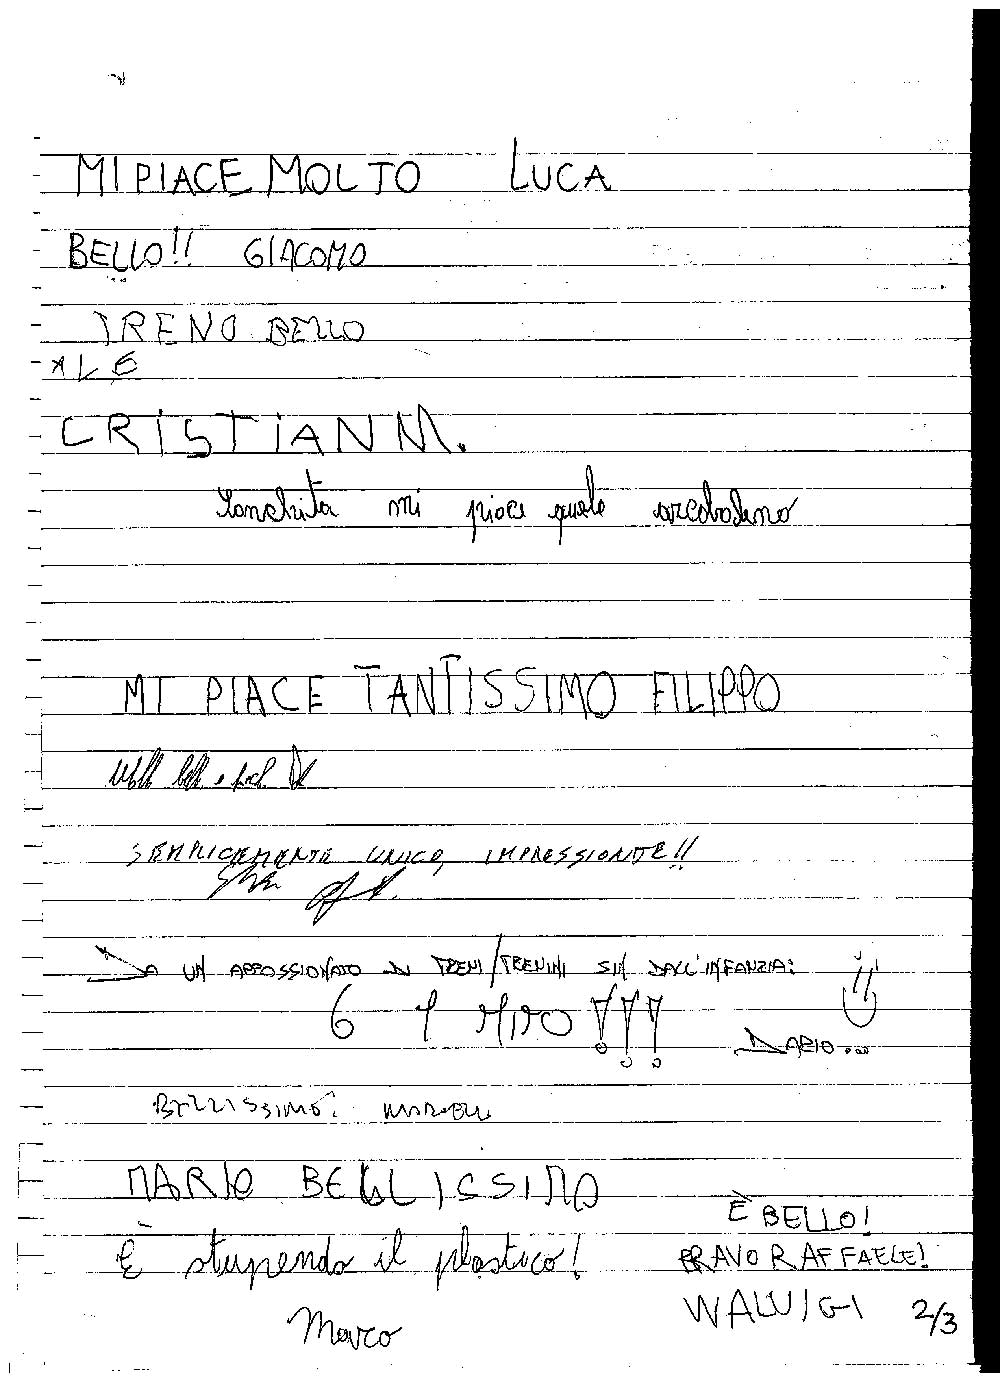 MI PIACE MOLTO LUCA
BELLO!! GIACOMO
TRENO BELLO
ALE
CRISTIAN M.
mi piace quale arcobaleno
MI PIACE TANTISSIMO FILIPPO
SEMPLICEMENTE UNICO, IMPRESSIONTE!!
DA UN APPASSIONATO DI TRENI/TRENINI SIN DALL'INFANZIA:
6 1 MITO!!!
DARIO...
BELLISSIMO!
MARIO BELLISSIMO
È BELLO!
È stupendo il plastico!
BRAVO RAFFAELE!
WALUIGI
Marco
2/3